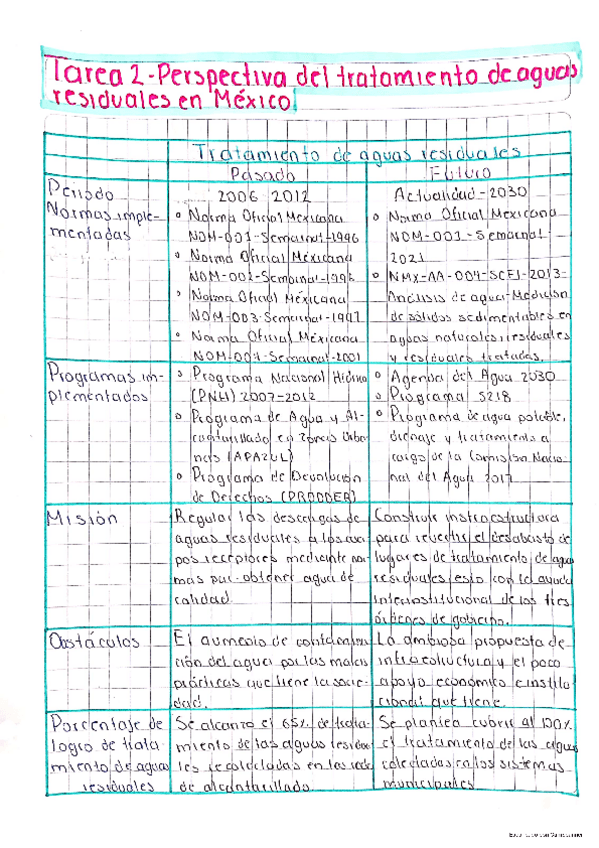 Tarea 2-Perspectiva del tratamiento de aguas
residuales en México
Tratamiento de aguas residuales
Pasado
Futuro
Periodo
2006 2012
Actualidad-2030
Normas imple-
mentadas
• Norma Oficial Mexicana
NOM-001-Semarnat-1996
• Norma Oficial Mexicana
NOM-002-Semarnat-1996
• Norma Oficial Mexicana
NOM-003-Semarnat-1997
• Norma Oficial Mexicana
NOM-004-Semarnat-2001
• Norma Oficial Mexicana
NOM-001-Semarnat
2021
• NMX-AA-004-SCFI-2013-
Análisis de agua-Medición
de sólidos sedimentables en
aguas naturales, residuales
y residuales tratadas.
Programas im-
plementados
• Programa Nacional Hídrico
(PNH) 2007-2012
• Programa de Agua y Al-
cantarillado en Zonas Urba-
nas (APAZUL)
• Programa de Devolución
de Derechos (PRODDER)
• Agenda del Agua 2030
• Programa S218
• Programa de agua potable,
drenaje y tratamiento a
cargo de la Comisión Nacio-
nal del Agua 2017
Misión
Regular las descargas de
aguas residuales a los cuer-
pos receptores mediante nor-
mas para obtener agua de
calidad.
Construir infraestructura
para revertir el desabasto de
lugares de tratamiento de agua
residuales, esto con la ayuda
interinstitucional de los tres
órdenes de gobierno.
Obstáculos
El aumento de contamina-
ción del agua por las malas
prácticas que tiene la socie-
dad.
La ambiosa propuesta de
infraestructura y el poco
apoyo económico e institu
cional que tiene.
Porcentaje de
logro de trata-
miento de aguas
residuales
Se alcanzo el 65% de trata-
miento de las aguas residua
les recolectadas en las rede
de alcantarillado
Se plantea cubrir al 100%
el tratamiento de las aguas
colectadas en los sistemas
municipales